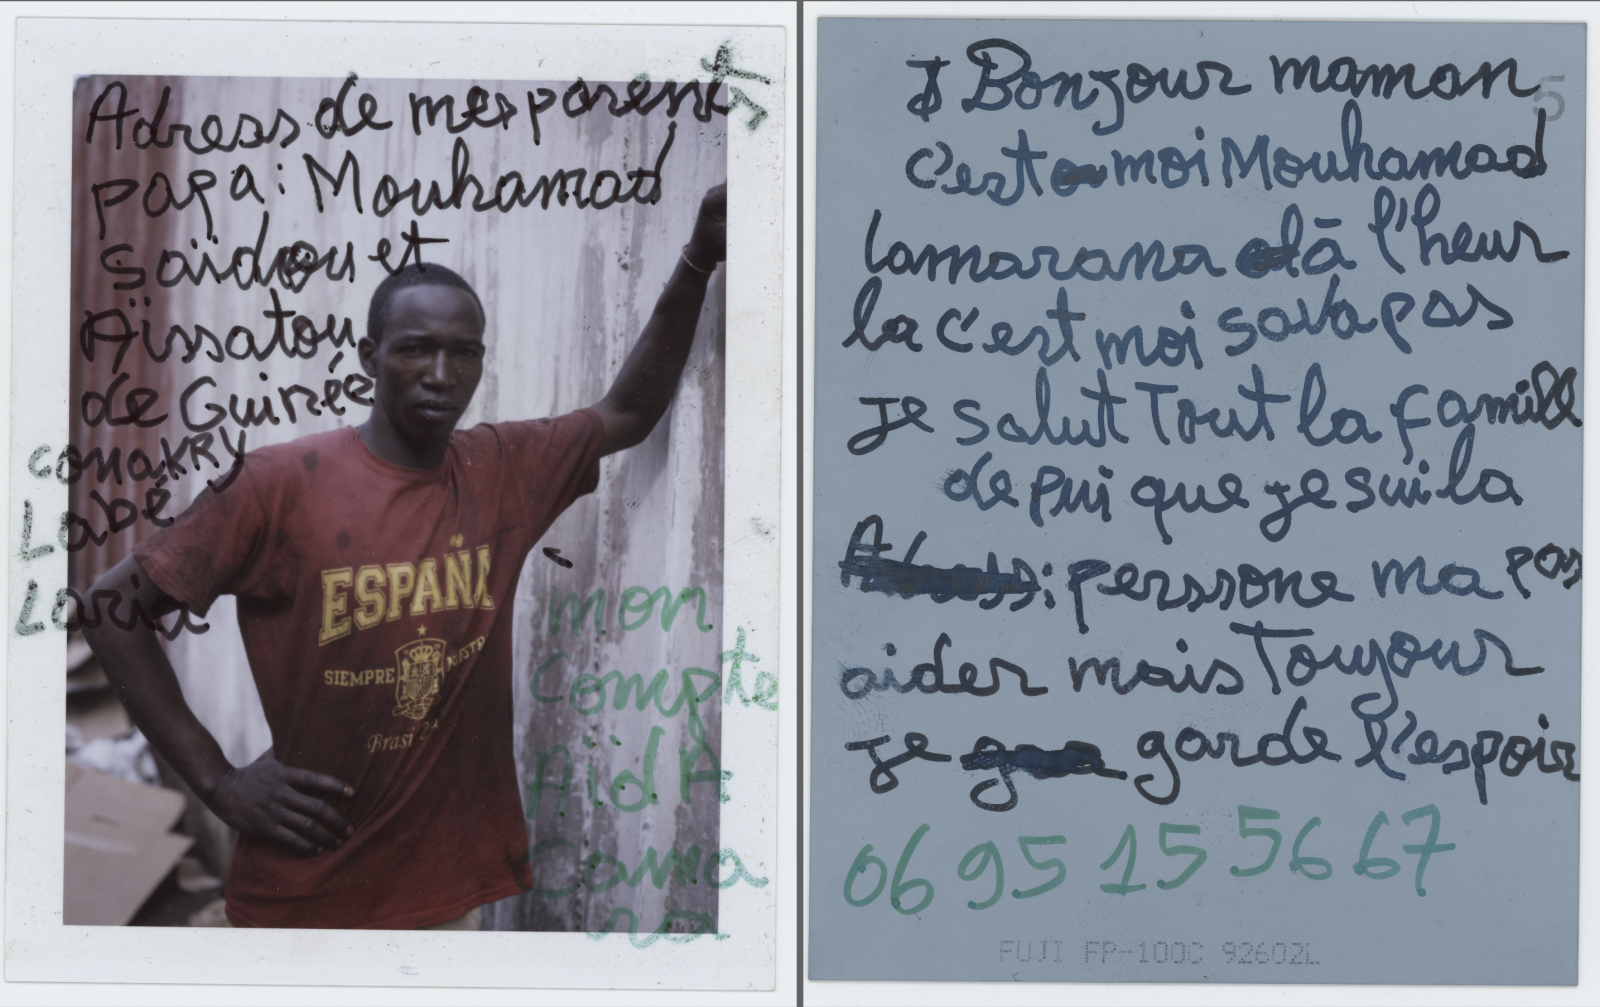 Adress de mes parents
papa: Mouhamad
saïdou et
Aïssatou
de Guinée
conakRy
Labé
Laria
ESPAÑA
SIEMPRE
mon
compte
AïdA
Cama
ra
Bonjour maman
c'est moi Mouhamad
lamarana à l'heur
la c'est moi sava pas
je salut Tout la famill
de pui que je sui la
: perssone ma pas
aider mais Toujour
je garde l'espoir
06 95 15 56 67
FUJI FP-100C 92602L